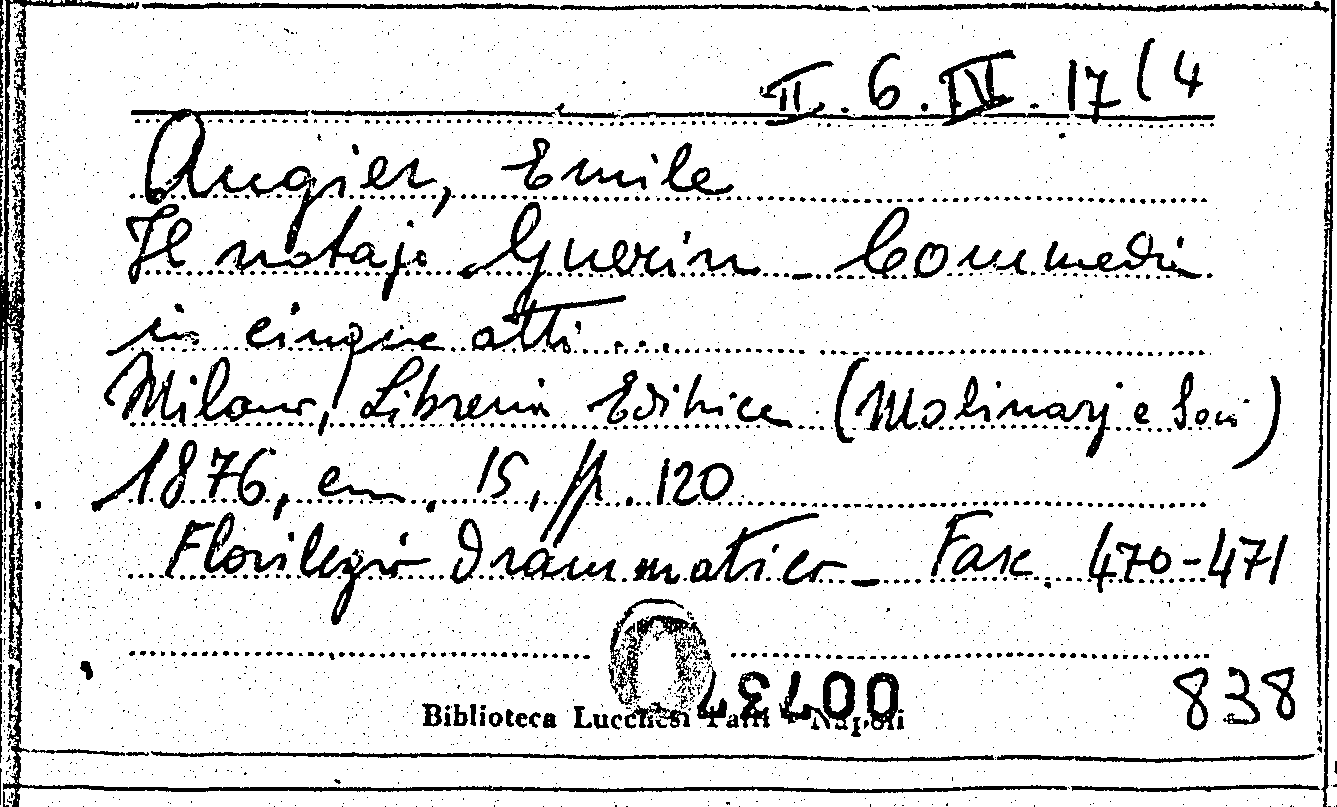 II. 6. IV. 17 (4
Augier, Emile
Il notajo Guerin - Commedia
in cinque atti ...
Milano, Libreria Editrice (Molinarj e Soci)
1876, cm. 15, pp. 120
Florilegio Drammatico - Fasc. 470-471
Biblioteca Lucchesi Palli - Napoli
838